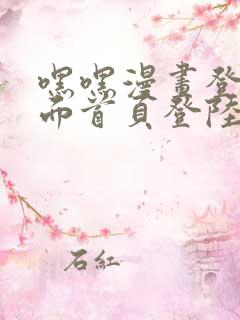 嘿嘿漫畫登
而首頁登陸
石紅